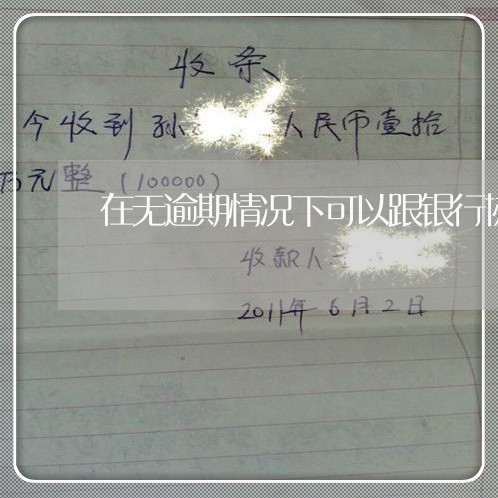 收条
今收到孙 人民币壹拾
万元整(100000)
在无逾期情况下可以跟银行
收款人
2011年6月2日